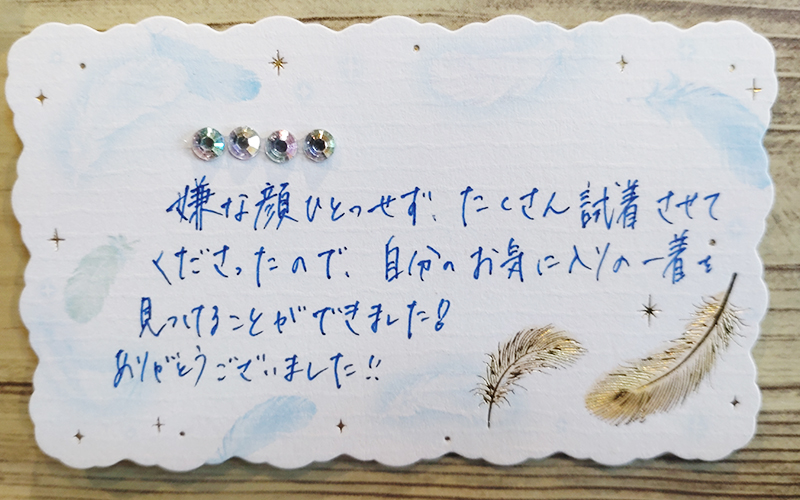 嫌な顔ひとつせず、たくさん試着させて
くださったので、自分のお気に入りの一着を
見つけることができました!
ありがとうございました!!